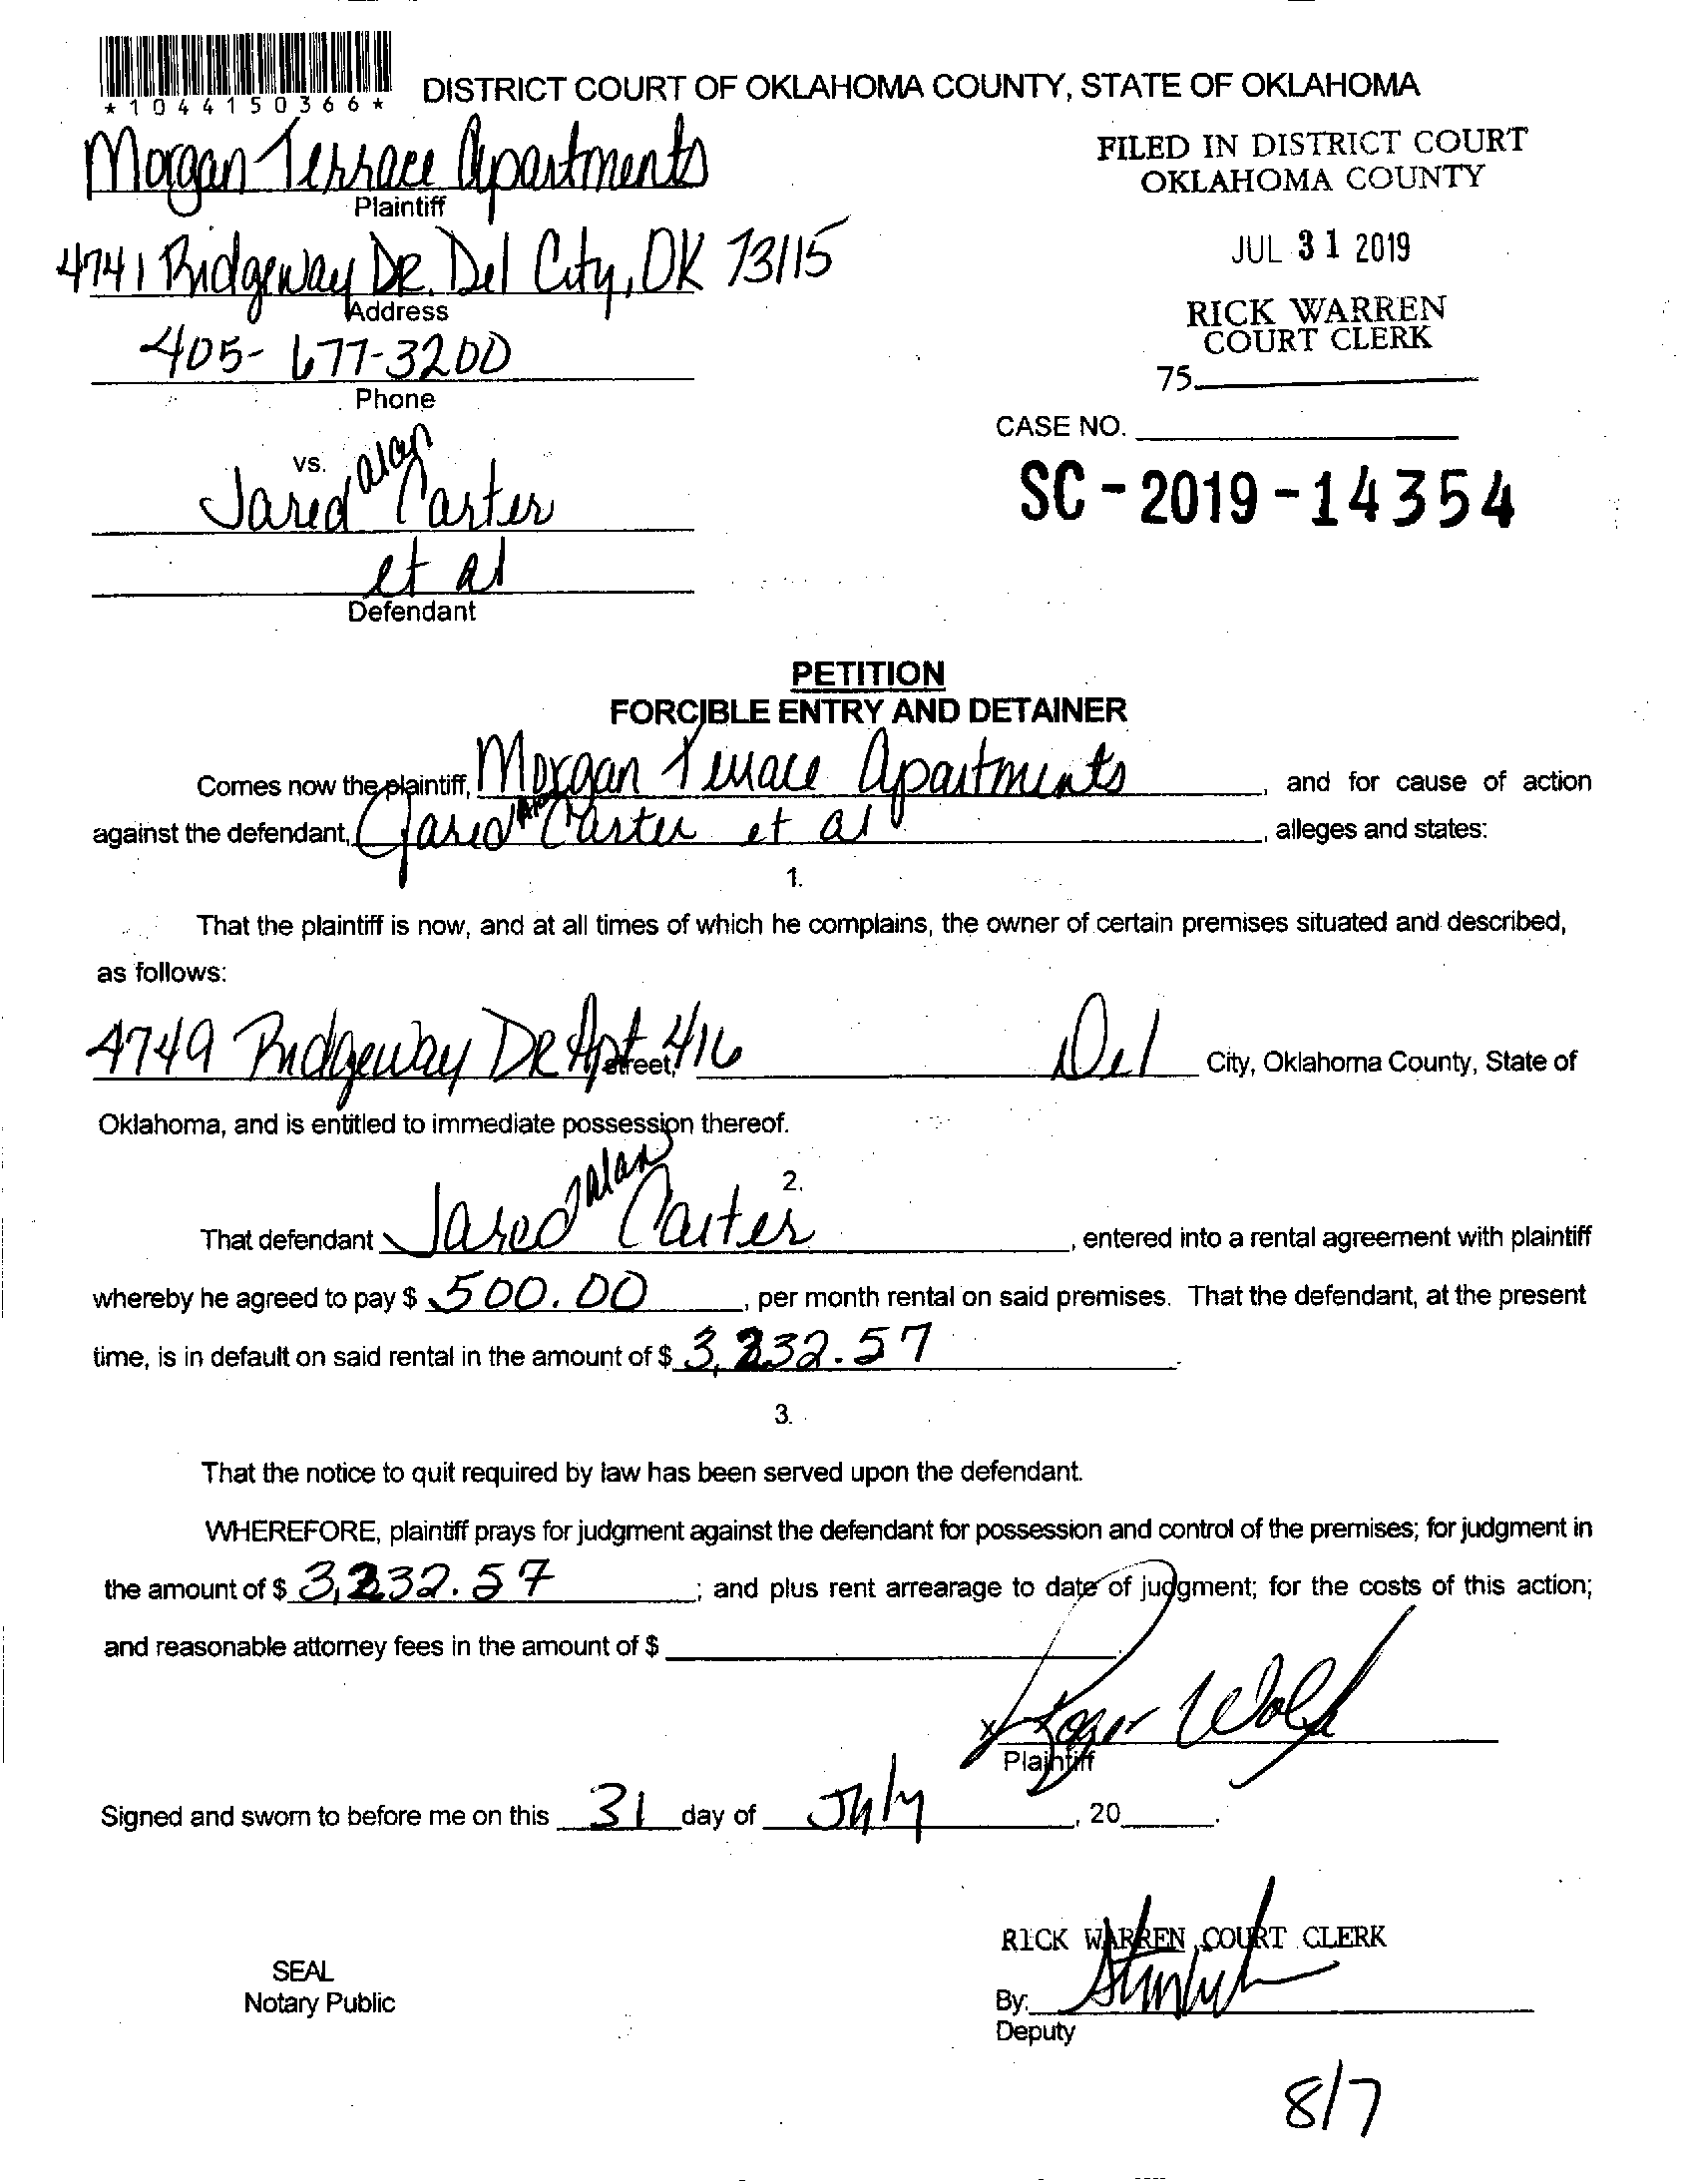 *1044150366*
DISTRICT COURT OF OKLAHOMA COUNTY, STATE OF OKLAHOMA
Morgan Terrace Apartments
Plaintiff
FILED IN DISTRICT COURT
OKLAHOMA COUNTY
4741 Ridgeway DR. Del City, OK 73115
Address
JUL 31 2019
RICK WARREN
COURT CLERK
405-677-3200
Phone
75
CASE NO.
vs.
Jared alan Carter
SC-2019-14354
et al
Defendant
PETITION
FORCIBLE ENTRY AND DETAINER
Comes now the plaintiff, Morgan Terrace Apartments, and for cause of action
against the defendant, Jared Alan Carter et al, alleges and states:
1.
That the plaintiff is now, and at all times of which he complains, the owner of certain premises situated and described,
as follows:
4749 Ridgeway DR Apt 416 Street, Del City, Oklahoma County, State of
Oklahoma, and is entitled to immediate possession thereof.
2.
That defendant Jared alan Carter, entered into a rental agreement with plaintiff
whereby he agreed to pay $ 500.00, per month rental on said premises. That the defendant, at the present
time, is in default on said rental in the amount of $
3.
That the notice to quit required by law has been served upon the defendant.
WHEREFORE, plaintiff prays for judgment against the defendant for possession and control of the premises; for judgment in
the amount of $ ; and plus rent arrearage to date of judgment; for the costs of this action;
and reasonable attorney fees in the amount of $
x Roger
Plaintiff
Signed and sworn to before me on this 31 day of July, 20 .
RICK WARREN COURT CLERK
SEAL
Notary Public
By:
Deputy
8/7